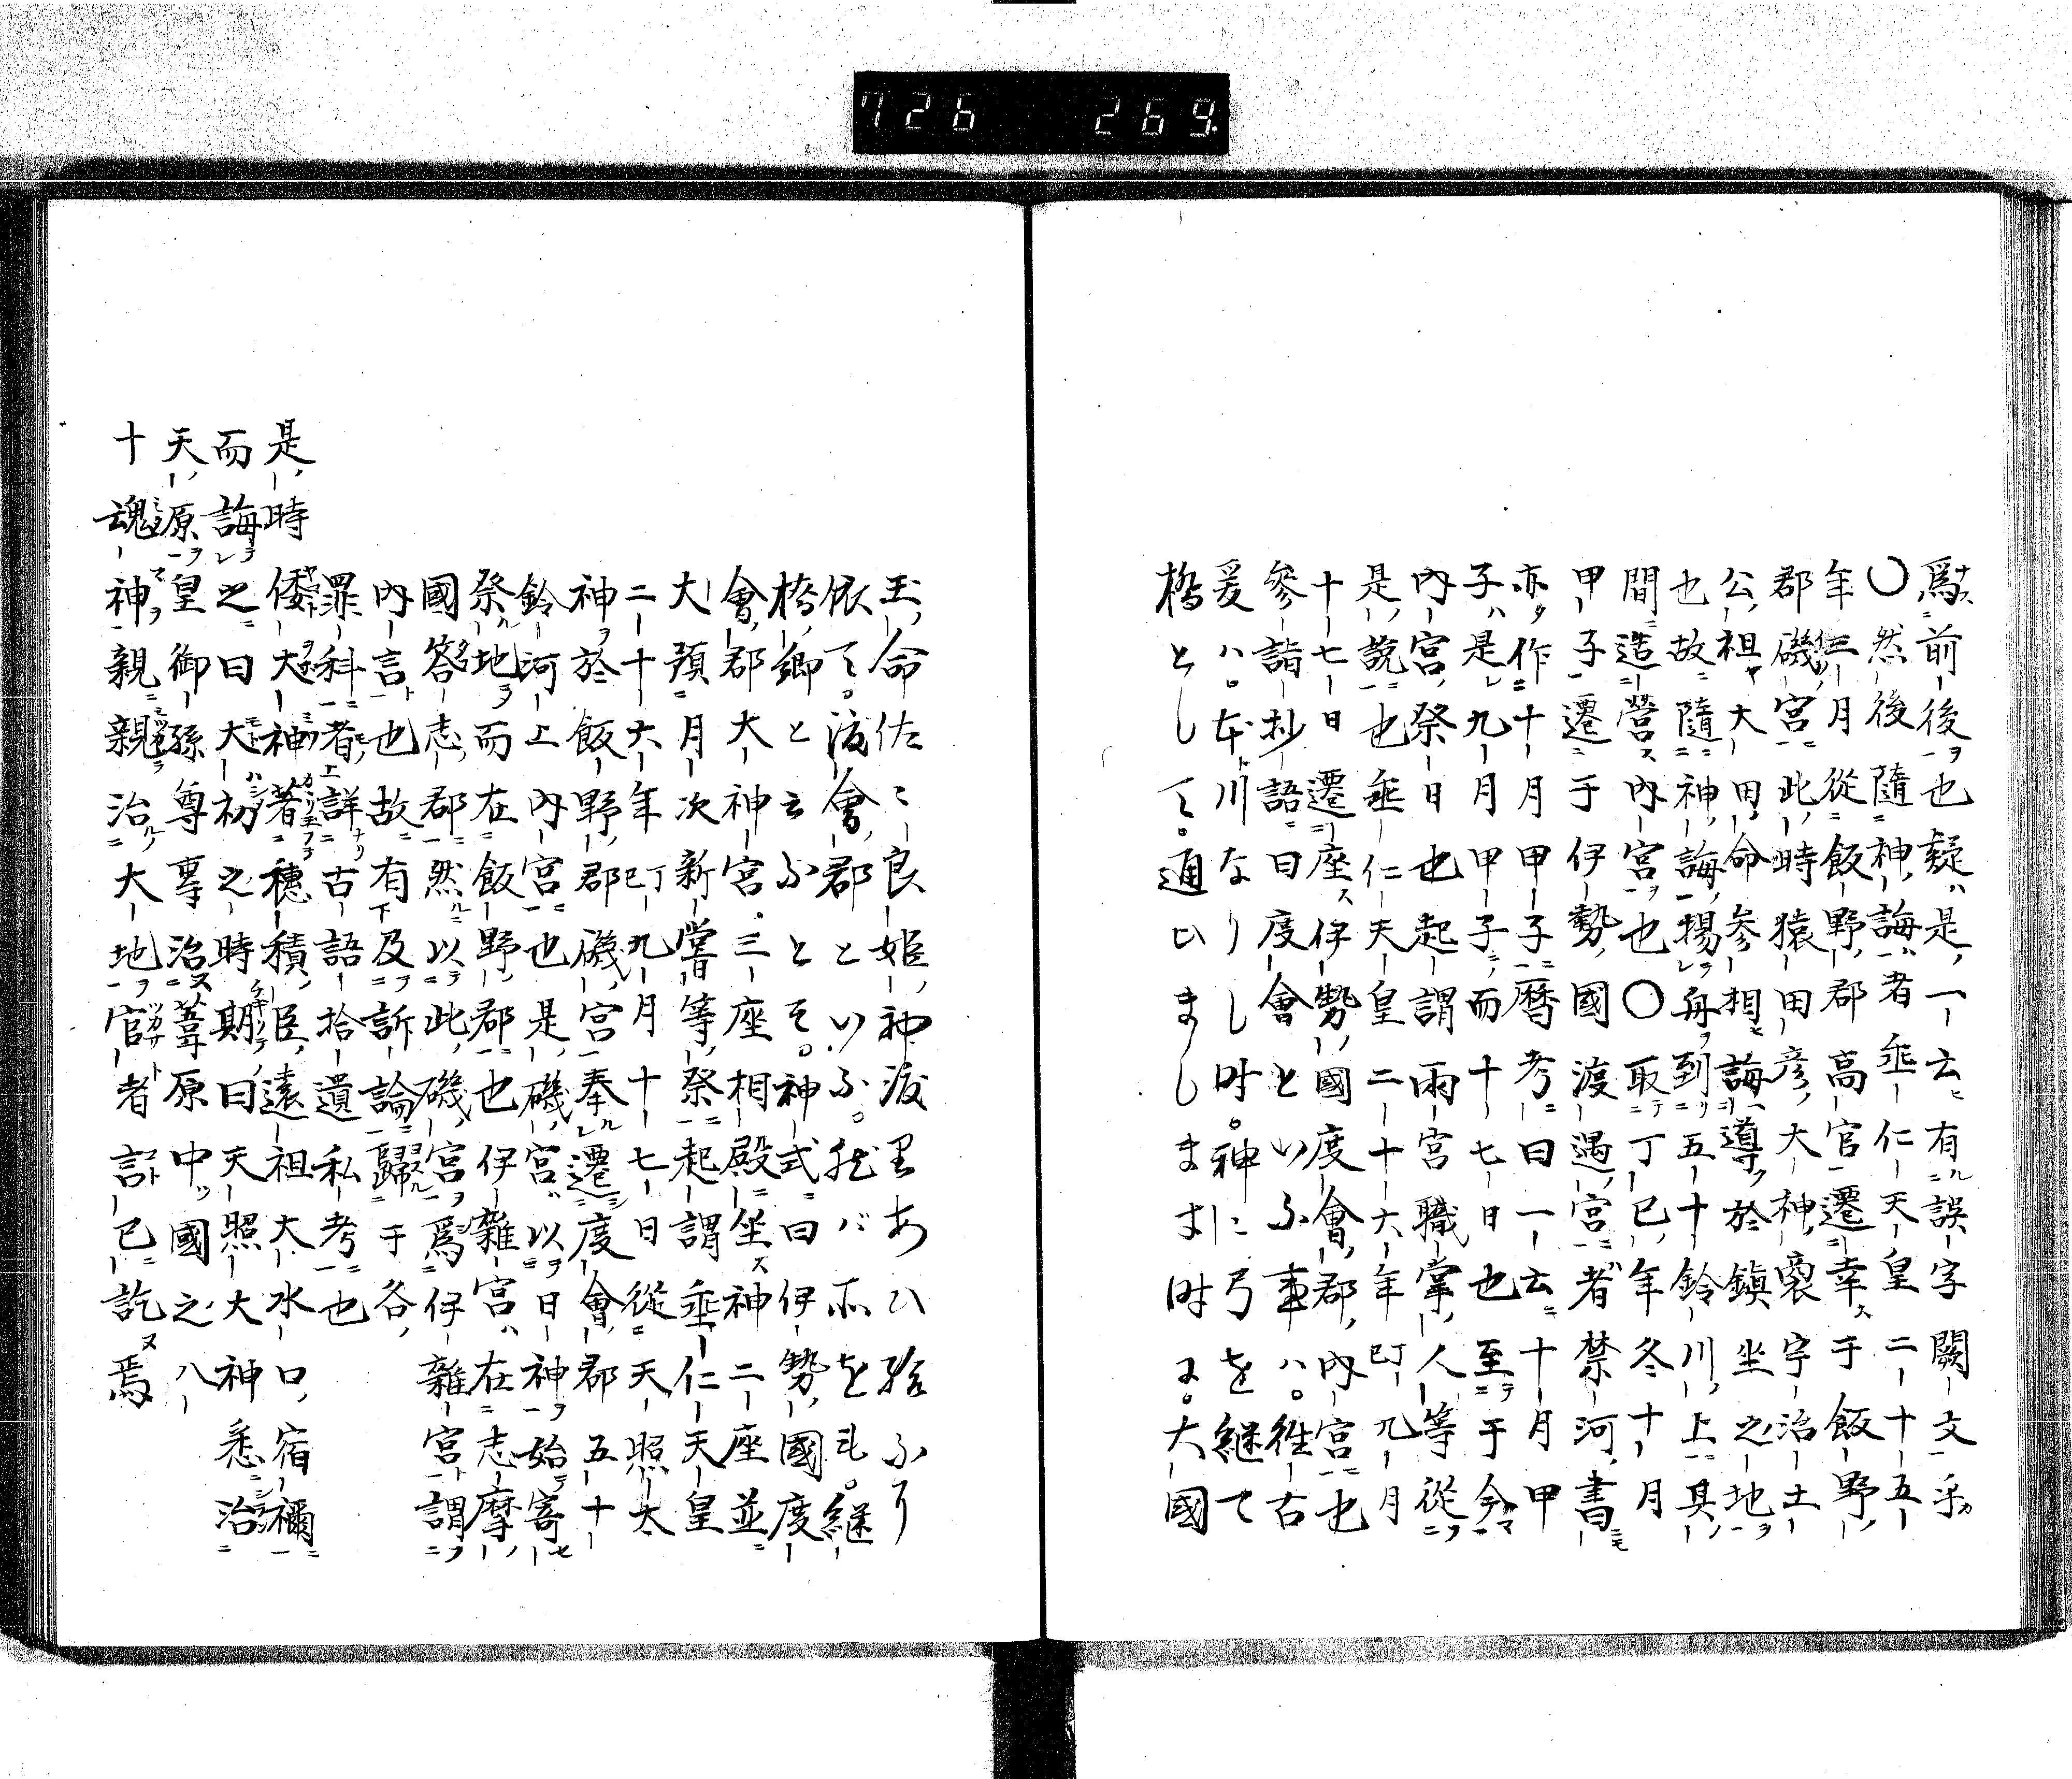 726 269
爲前後也疑是一云有誤字闕文乎
〇然後隨神誨者垂仁天皇二十五
年三月從飯野郡高宮遷幸于飯野
郡磯宮此時猿田彦大神裔宇治土
公祖大田命参相誨導於鎭坐之地
也故隨神誨揚舟到五十鈴川上其
間造營内宮也〇取丁巳年冬十月
甲子遷于伊勢國渡遇宮者禁河書
亦作十月甲子暦考曰一云十月甲
子是九月甲子而十七日也至于今
内宮祭日也起謂雨宮職掌人等從
是説也垂仁天皇二十六年丁巳九月
十七日遷座伊勢國度會郡内宮也
參詣抄語曰度會といふ事ハ。往古
爰ハ。大川なりし時。神に弓を継て
橋として。通ひましします時に。大國
玉命佐々良姫神渡里あひ給ふに
依て。渡會郡といふ。然バ亦をも。継
橋郷と云ふとそ。神式曰伊勢國度
會郡大神宮三座相殿坐神二座並
大預月次新嘗等祭起謂垂仁天皇
二十六年丁巳九月十七日從天照太
神於飯野郡磯宮奉遷度會郡五十
鈴河上内宮也是磯宮以日神始寄
祭地而在飯野郡也伊雜宮在志摩
國答志郡然以此磯宮爲伊雜宮謂
内言也故有及訴論歸于各
罪科者詳古語拾遺私考也
是時倭大神著穗積臣遠祖大水口宿禰
而誨之曰大初之時期曰天照大神悉治
天原皇御孫尊專治葦原中國之八
十魂神親親治大地官者言已訖焉